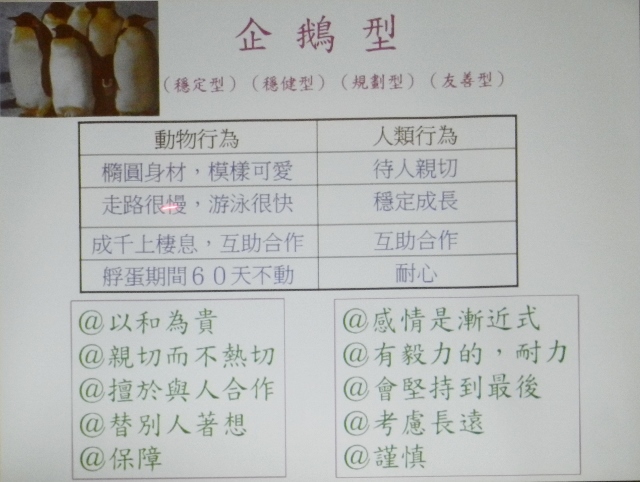 企鵝型
（穩定型）（穩健型）（規劃型）（友善型）
動物行為 人類行為
橢圓身材，模樣可愛 待人親切
走路很慢，游泳很快 穩定成長
成千上棲息，互助合作 互助合作
孵蛋期間６０天不動 耐心
@以和為貴
@親切而不熱切
@擅於與人合作
@替別人著想
@保障
@感情是漸近式
@有毅力的，耐力
@會堅持到最後
@考慮長遠
@謹慎